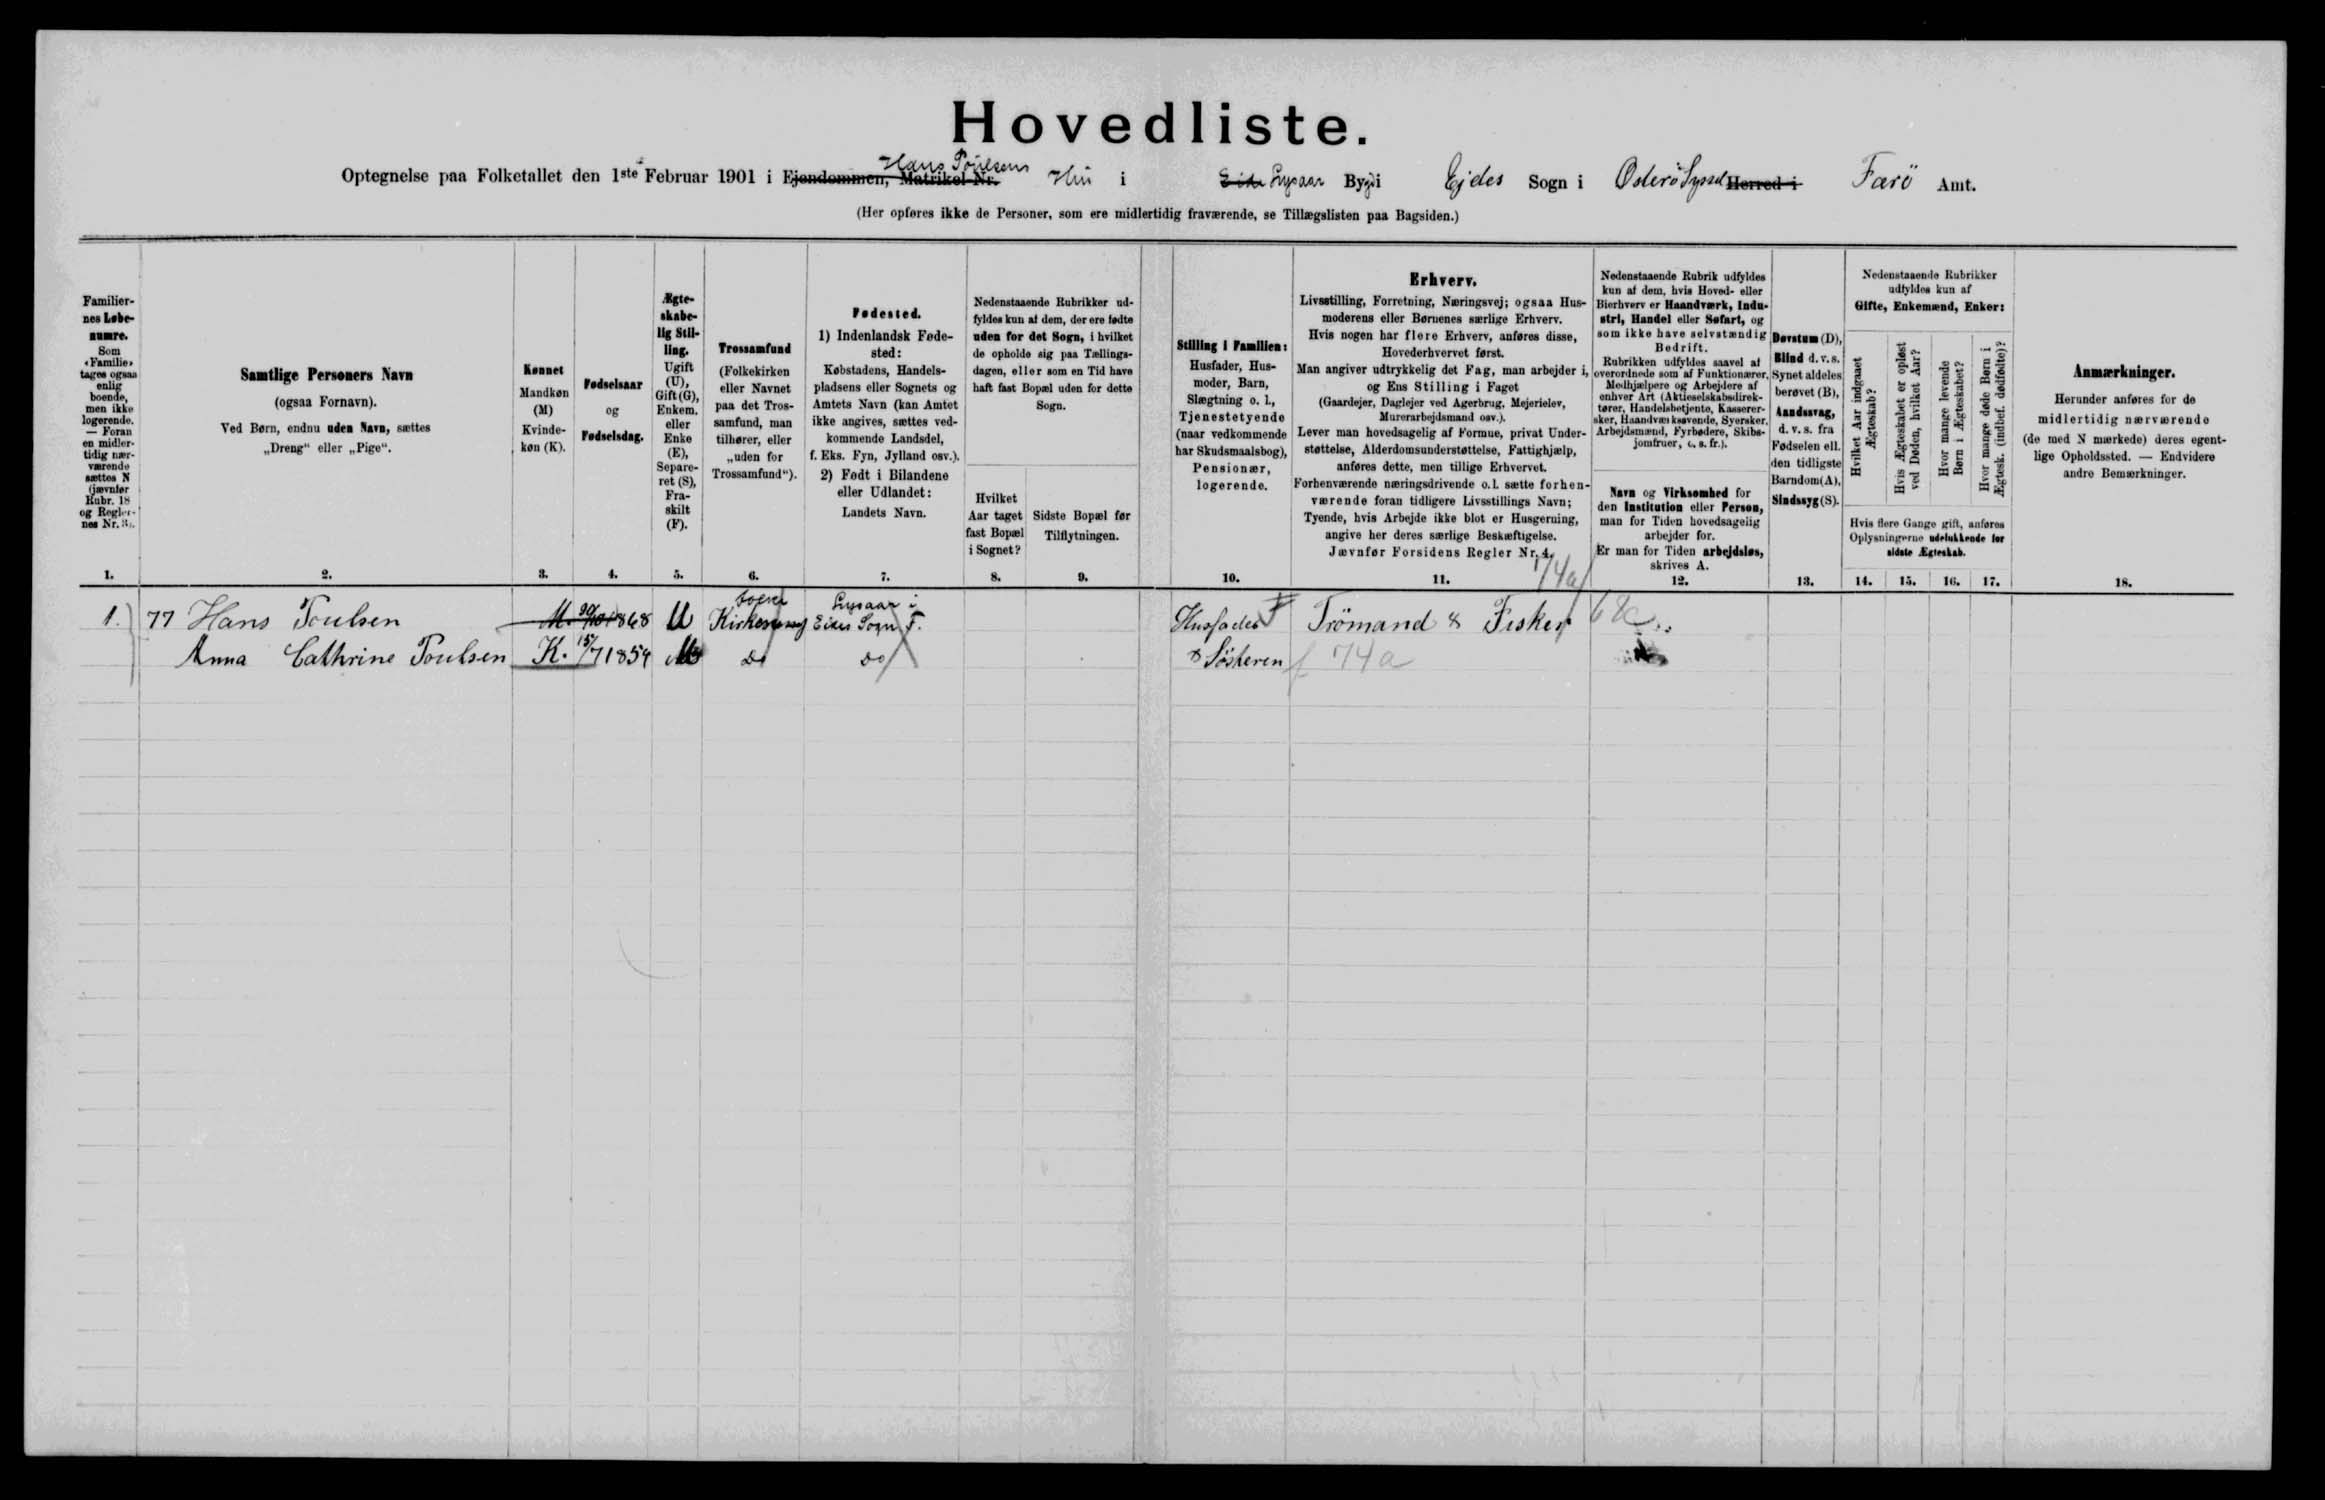 Hovedliste.
Hans Poulsens
Optegnelse paa Folketallet den 1ste Februar 1901 i Ejendommen, Matrikel-Nr. Hus i Eide Lysaar Bygd i Ejdes Sogn i Österö Syssel Herred i Færö Amt.
(Her opføres ikke de Personer, som ere midlertidig fraværende, se Tillægslisten paa Bagsiden.)
Familier-
nes Løbe-
numre.
Som
‹Familie›
tages ogsaa
enlig
boende,
men ikke
logerende.
— Foran
en midler-
tidig nær-
værende
sættes N
(jævnfør
Rubr. 18
og Regler-
nes Nr. 3).
1.
Samtlige Personers Navn
(ogsaa Fornavn).
Ved Børn, endnu uden Navn, sættes
„Dreng“ eller „Pige“.
2.
Kønnet
Mandkøn
(M)
Kvinde-
køn (K).
3.
Fødselsaar
og
Fødselsdag.
4.
Ægte-
skabe-
lig Stil-
ling.
Ugift
(U),
Gift (G),
Enkem.
eller
Enke
(E),
Separe-
ret (S),
Fra-
skilt
(F).
5.
Trossamfund
(Folkekirken
eller Navnet
paa det Tros-
samfund, man
tilhører, eller
„uden for
Trossamfund“).
6.
Fødested.
1) Indenlandsk Føde-
sted:
Købstadens, Handels-
pladsens eller Sognets og
Amtets Navn (kan Amtet
ikke angives, sættes ved-
kommende Landsdel,
f. Eks. Fyn, Jylland osv.).
2) Født i Bilandene
eller Udlandet:
Landets Navn.
7.
Nedenstaaende Rubrikker ud-
fyldes kun af dem, der ere fødte
uden for det Sogn, i hvilket
de opholde sig paa Tællings-
dagen, eller som en Tid have
haft fast Bopæl uden for dette
Sogn.
Hvilket
Aar taget
fast Bopæl
i Sognet?
8.
Sidste Bopæl før
Tilflytningen.
9.
Stilling i Familien:
Husfader, Hus-
moder, Barn,
Slægtning o. l.,
Tjenestetyende
(naar vedkommende
har Skudsmaalsbog),
Pensionær,
logerende.
10.
Erhverv.
Livsstilling, Forretning, Næringsvej; ogsaa Hus-
moderens eller Børnenes særlige Erhverv.
Hvis nogen har flere Erhverv, anføres disse,
Hovederhvervet først.
Man angiver udtrykkelig det Fag, man arbejder i,
og Ens Stilling i Faget
(Gaardejer, Daglejer ved Agerbrug, Mejerielev,
Murerarbejdsmand osv.).
Lever man hovedsagelig af Formue, privat Under-
støttelse, Alderdomsunderstøttelse, Fattighjælp,
anføres dette, men tillige Erhvervet.
Forhenværende næringsdrivende o. l. sætte forhen-
værende foran tidligere Livsstillings Navn;
Tyende, hvis Arbejde ikke blot er Husgerning,
angive her deres særlige Beskæftigelse.
Jævnfør Forsidens Regler Nr. 4.
11.
Nedenstaaende Rubrik udfyldes
kun af dem, hvis Hoved- eller
Bierhverv er Haandværk, Indu-
stri, Handel eller Søfart, og
som ikke have selvstændig
Bedrift.
Rubrikken udfyldes saavel af
overordnede som af Funktionærer,
Medhjælpere og Arbejdere af
enhver Art (Aktieselskabsdirek-
tører, Handelsbetjente, Kasserer-
sker, Haandværkssvende, Syersker,
Arbejdsmænd, Fyrbødere, Skibs-
jomfruer, o. s. fr.).
Navn og Virksomhed for
den Institution eller Person,
man for Tiden hovedsagelig
arbejder for.
Er man for Tiden arbejdsløs,
skrives A.
12.
Døvstum (D),
Blind d. v. s.
Synet aldeles
berøvet (B),
Aandssvag,
d. v. s. fra
Fødselen ell.
den tidligste
Barndom (A),
Sindssyg (S).
13.
Nedenstaaende Rubrikker
udfyldes kun af
Gifte, Enkemænd, Enker:
Hvilket Aar indgaaet
Ægteskab?
Hvis Ægteskabet er opløst
ved Døden, hvilket Aar?
Hvor mange levende
Børn i Ægteskabet?
Hvor mange døde Børn i
Ægtesk. (indbef. dødfødte)?
Hvis flere Gange gift, anføres
Oplysningerne udelukkende for
sidste Ægteskab.
14. 15. 16. 17.
Anmærkninger.
Herunder anføres for de
midlertidig nærværende
(de med N mærkede) deres egent-
lige Opholdssted. — Endvidere
andre Bemærkninger.
18.
1. 77 Hans Poulsen M. 30/10 1868 U Folke Kirken Lysaar i Eides Sogn F. Husfader Trömand & Fisker
Anna Cathrine Poulsen K. 15/7 1854 U Do Do Søsteren 74a